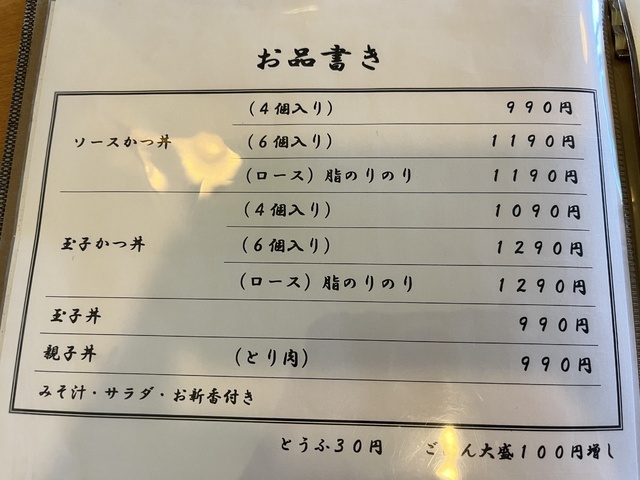 お品書き
(4個入り) 990円
ソースかつ丼 (6個入り) 1190円
(ロース) 脂のりのり 1190円
(4個入り) 1090円
玉子かつ丼 (6個入り) 1290円
(ロース) 脂のりのり 1290円
玉子丼 990円
親子丼 (とり肉) 990円
みそ汁・サラダ・お新香付き
とうふ30円 ごはん大盛100円増し